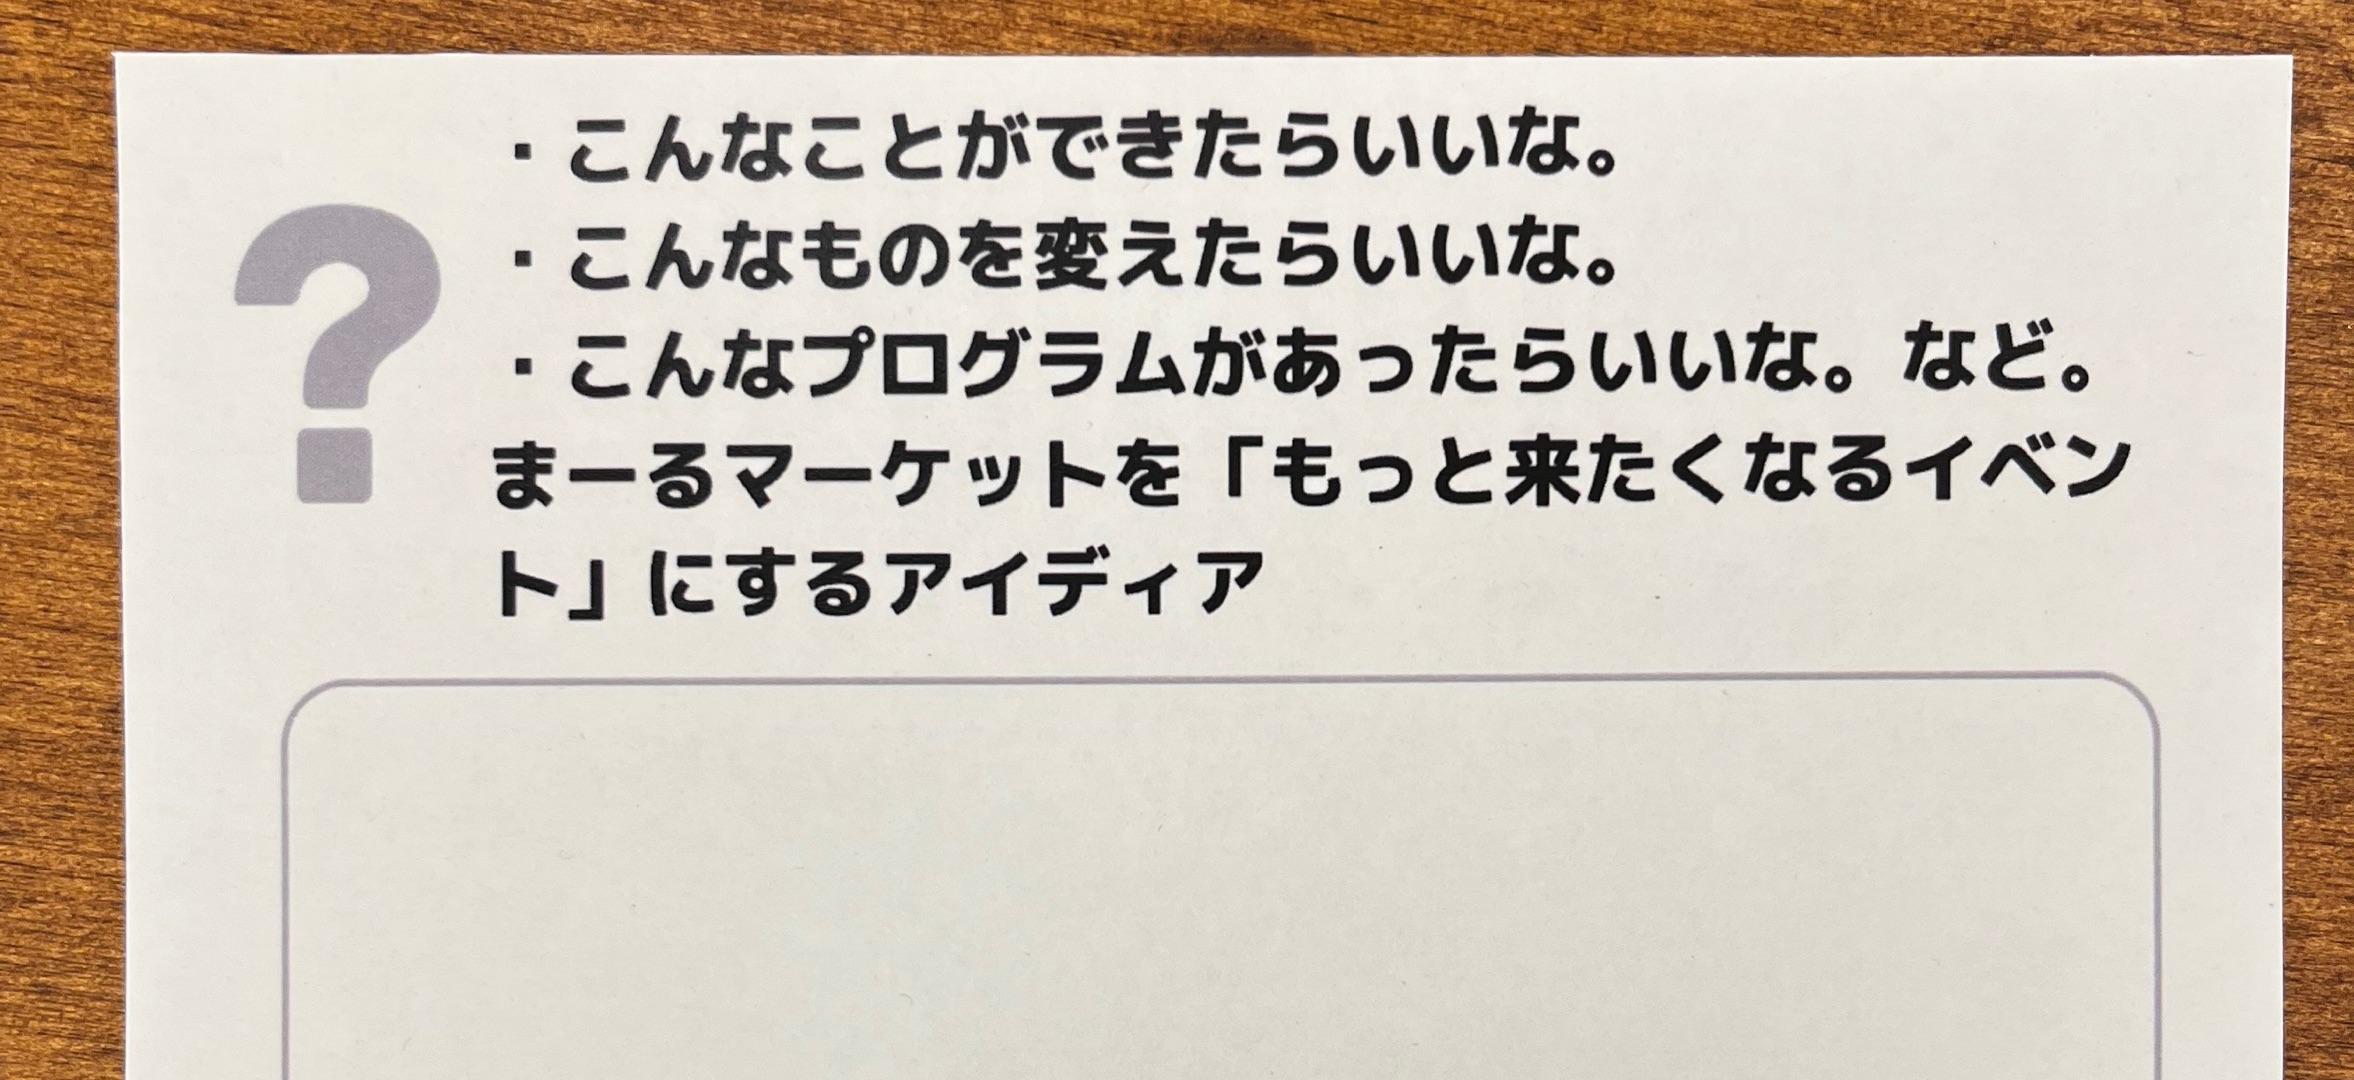 ?
・こんなことができたらいいな。
・こんなものを変えたらいいな。
・こんなプログラムがあったらいいな。など。
まーるマーケットを「もっと来たくなるイベン
ト」にするアイディア